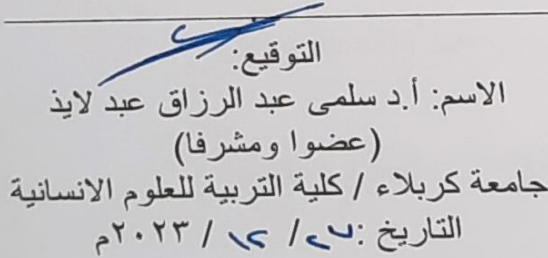 التوقيع:
الاسم: أ.د سلمى عبد الرزاق عبد لايذ
(عضوا ومشرفا)
جامعة كربلاء / كلية التربية للعلوم الانسانية
التاريخ: ٢٧/ ١٢ / ٢٠٢٣م